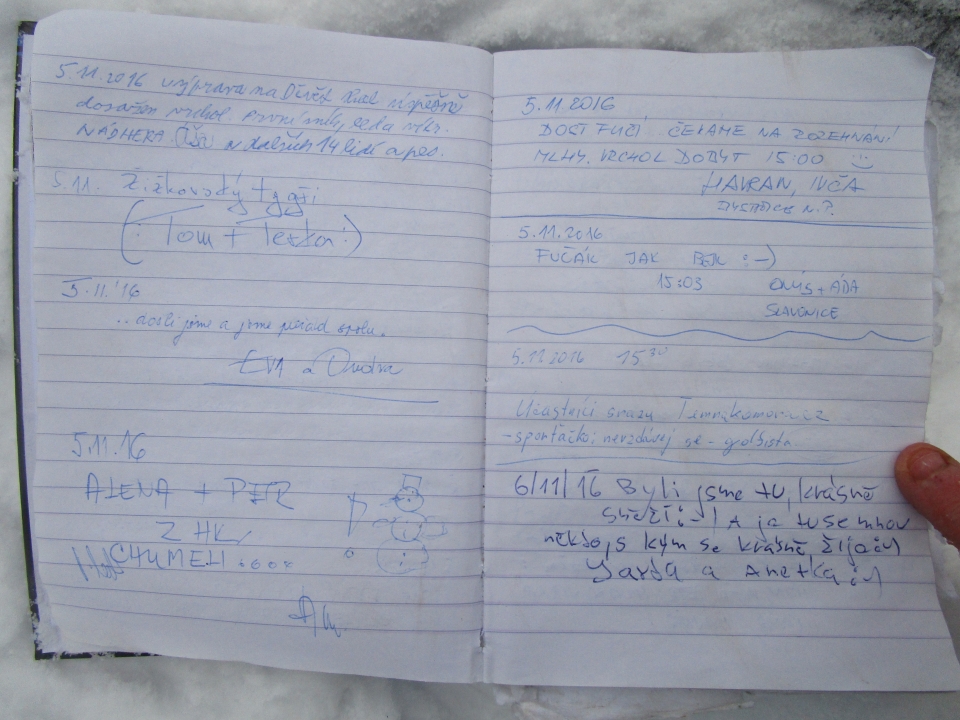 5.11.2016 výprava na Děvět Skal úspěšně
dosažen vrchol. První sníh, led a
NÁDHERA. a dalších 14 lidí a pes.
5.11. Žižkovský tygři
(: Tom +
5.11.'16
a jsme spolu.
EVA a
5.11.16
ALENA + PETR
Z HK
5.11.2016
DOST FUČÍ ČEKÁME NA ROZEHNÁNÍ
MLHY. VRCHOL DOBYT 15:00
HAVRAN, IVČA
BYSTŘICE N.P.
5.11.2016
FUČÁK JAK :-)
15:03 + ÁĎA
SLAVONICE
5.11.2016 15 30
Účastníci srazu
- sportačko; nevzdávej se - golfista
6/11/16 Byli jsme tu, krásně
sněží :-) A je tu se mnou
někdo, s kým se krásně žije :-)
Jarda a Anetka :-)